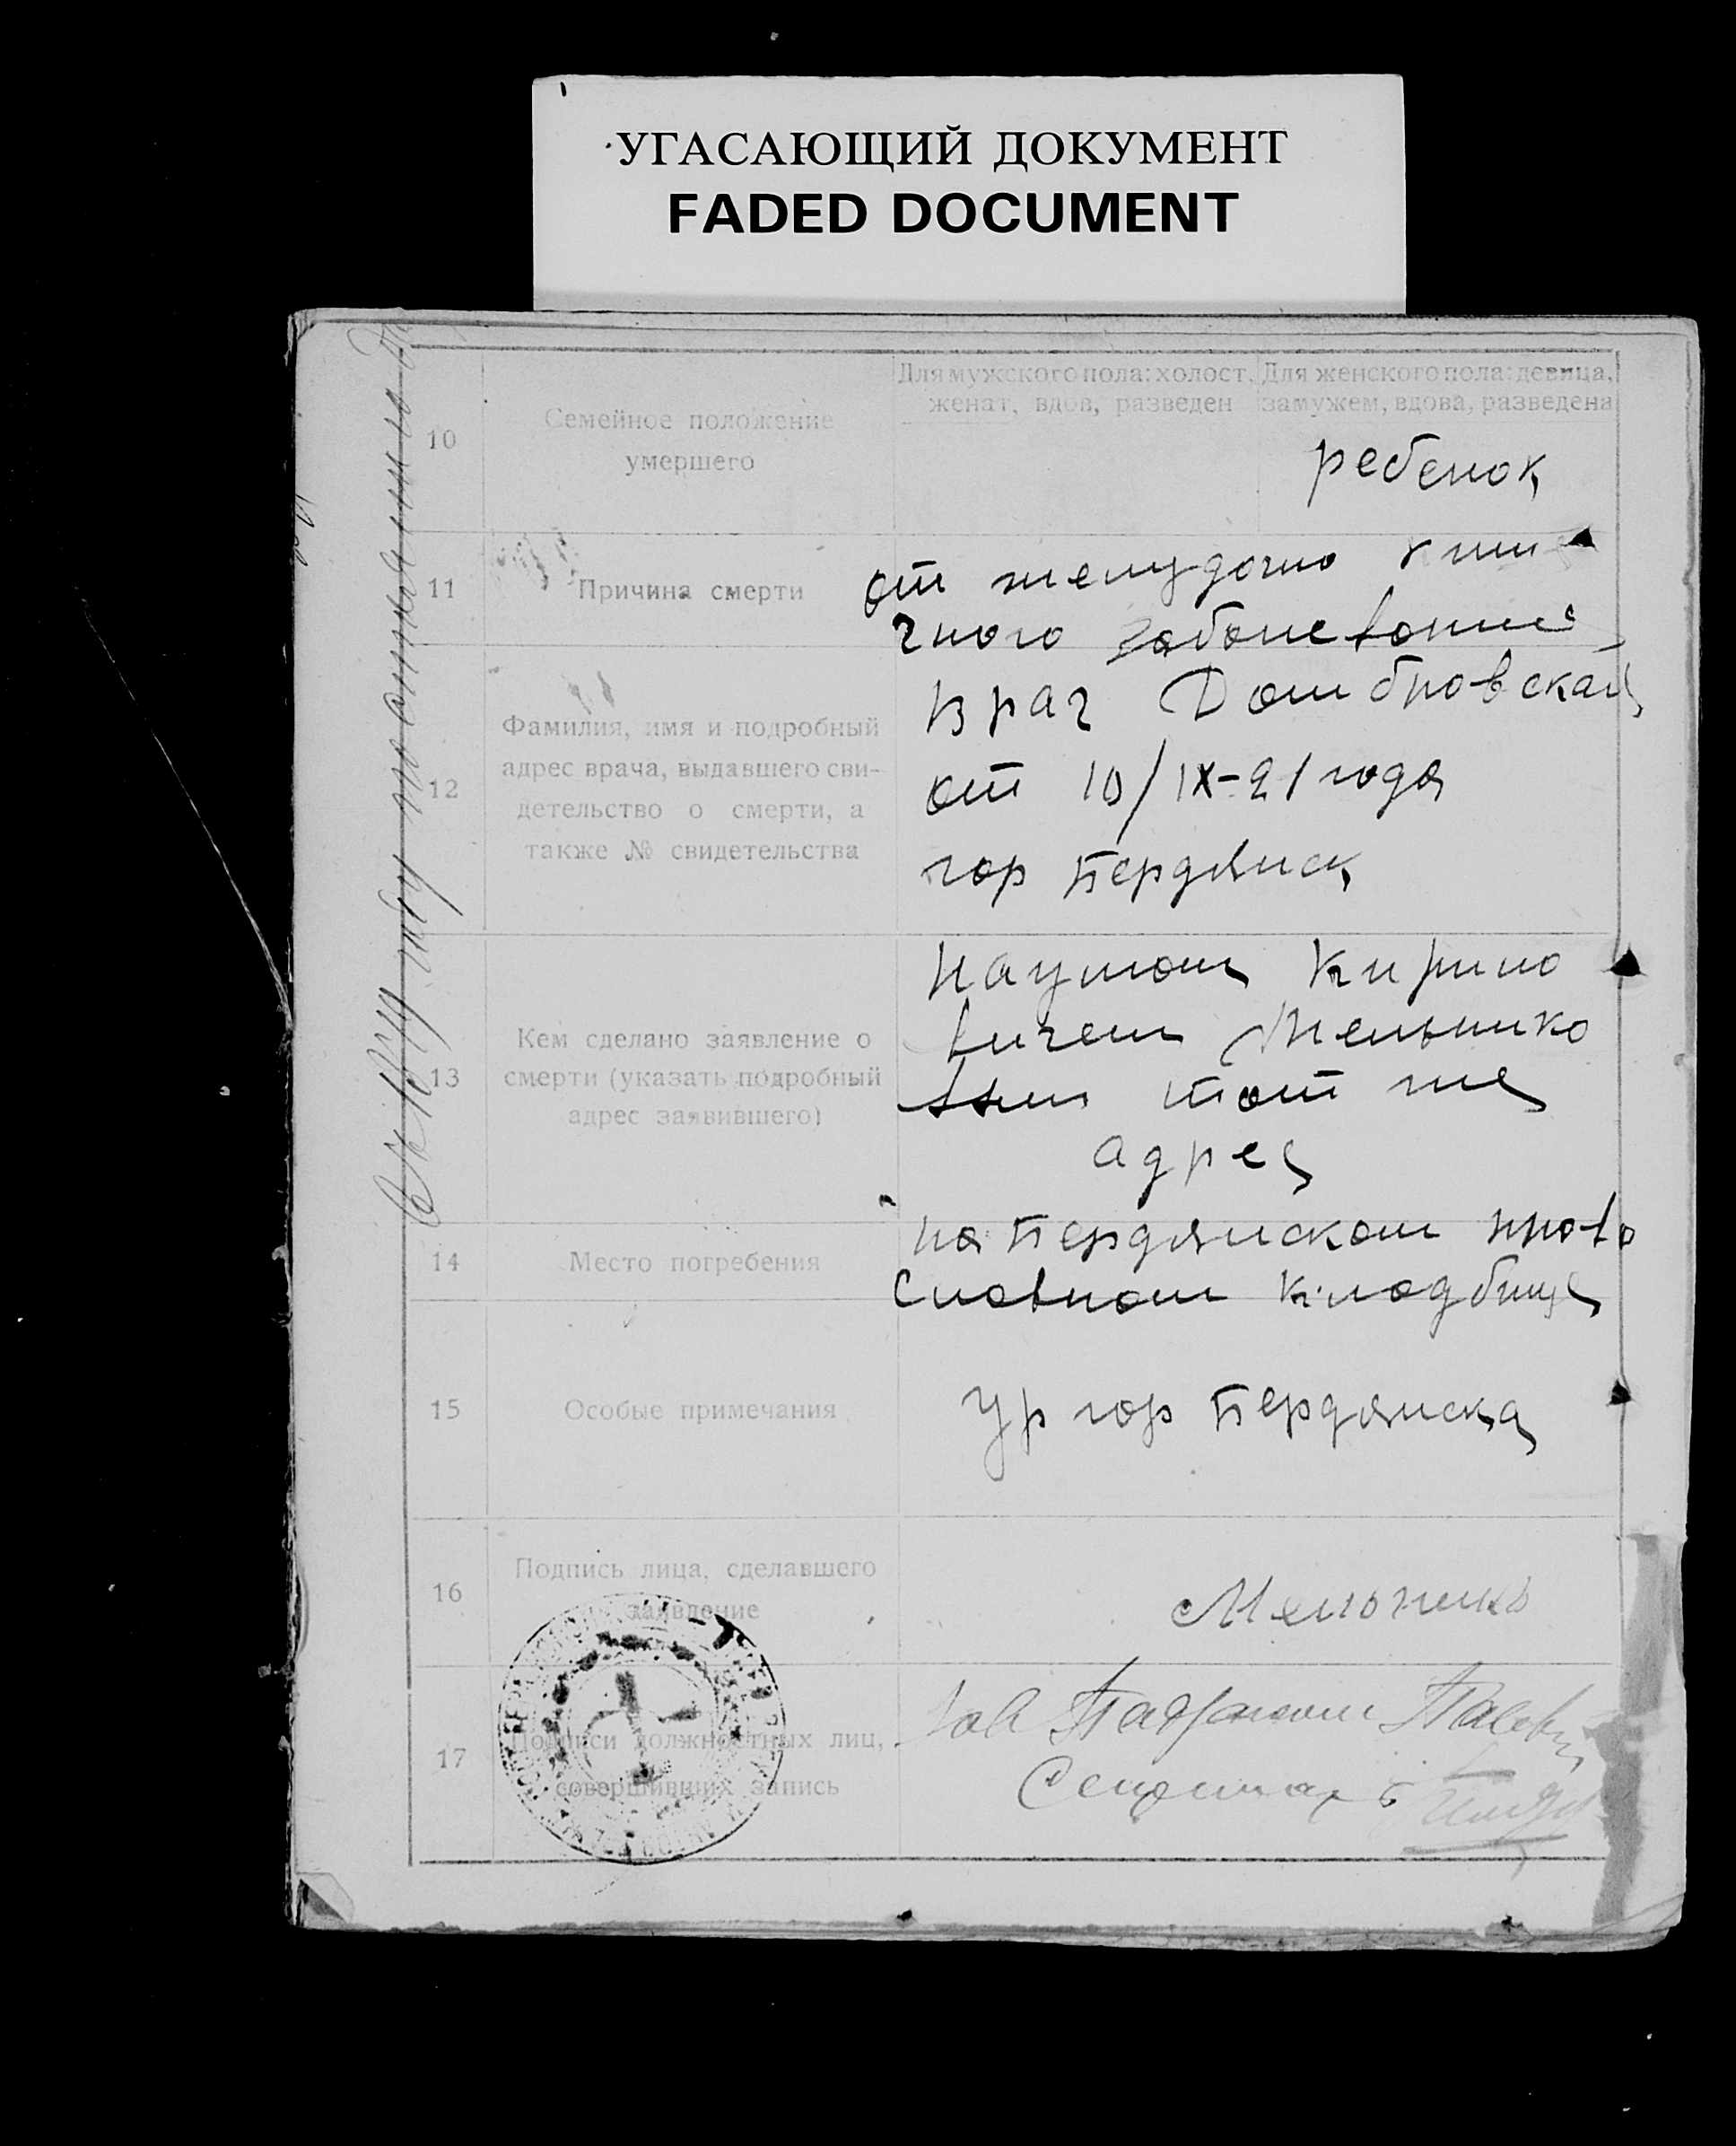 УГАСАЮЩИЙ ДОКУМЕНТ
FADED DOCUMENT
10
Семейное положение
умершего
Для мужского пола: холост,
женат, вдов, разведен
Для женского пола: девица,
замужем, вдова, разведена
ребенок
11
Причина смерти
от желудочно киш
чного заболевания
12
Фамилия, имя и подробный
адрес врача, выдавшего сви-
детельство о смерти, а
также № свидетельства
врач Домбровская
от 10/IX-21 года
гор Бердянск
13
Кем сделано заявление о
смерти (указать подробный
адрес заявившего)
Наумом Кирило
вичем Мельнико
вым тот же
адрес
14
Место погребения
на Бердянском право
славном кладбище
15
Особые примечания
ур гор Бердянска
16
Подпись лица, сделавшего
заявление
Мельнико
17
Подписи должностных лиц,
совершивших запись
Зав
Секретарь